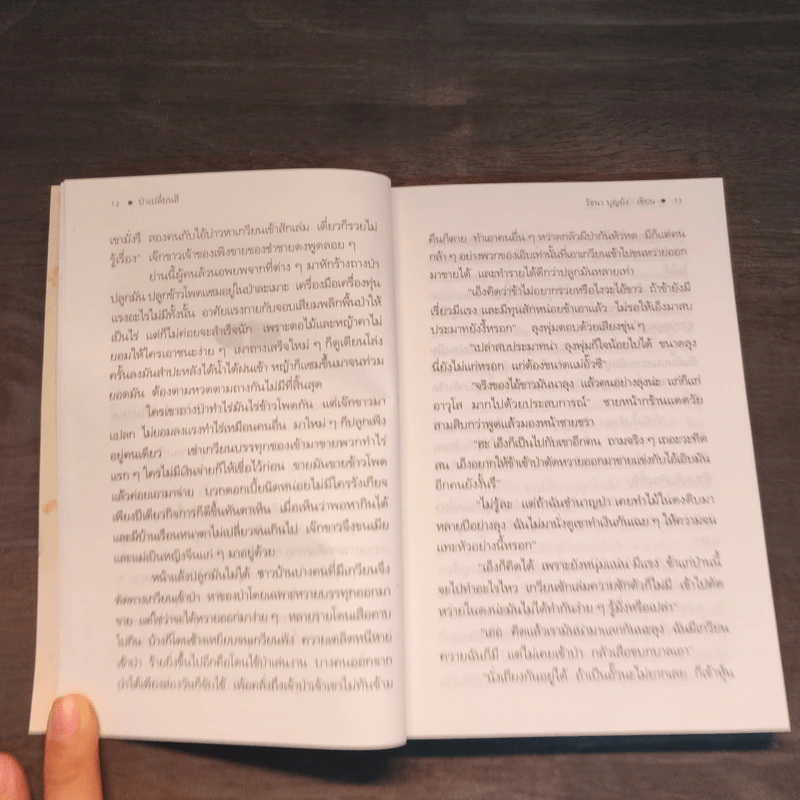 12 ● ป่าเปลี่ยนสี
เขามั่งรึ สองคนกับไอ้บ่าวหาเกวียนเข้าสักเล่ม เดี๋ยวก็รวยไม่
รู้เรื่อง" เจ๊กขาวเจ้าของเพิงขายของชำชายดงพูดลอย ๆ
ย่านนี้ผู้คนล้วนอพยพจากที่ต่าง ๆ มาหักร้างถางป่า
ปลูกมัน ปลูกข้าวโพดแซมอยู่ในป่าละเมาะ เครื่องมือเครื่องทุ่น
แรงอะไรไม่มีทั้งนั้น อาศัยแรงกายกับจอบเสียมพลิกฟื้นป่าให้
เป็นไร่ แต่ก็ไม่ค่อยจะสำเร็จนัก เพราะตอไม้และหญ้าคาไม่
ยอมให้ใครเอาชนะง่าย ๆ เผาถางเสร็จใหม่ ๆ ก็ดูเตียนโล่ง
ครั้นลงมันสำปะหลังได้น้ำได้ฝนเข้า หญ้าก็แซมขึ้นมาจนท่วม
ยอดมัน ต้องตามหวดตามถางกันไม่มีที่สิ้นสุด
ใครเขาถางป่าทำไร่มันไร่ข้าวโพดกัน แต่เจ๊กขาวมา
แปลก ไม่ยอมลงแรงทำไร่เหมือนคนอื่น มาใหม่ ๆ ก็ปลูกเพิง
อยู่คนเดียว เช่าเกวียนบรรทุกของเข้ามาขายพวกทำไร่
แรก ๆ ใครไม่มีเงินจ่ายก็ให้เชื่อไว้ก่อน ขายมันขายข้าวโพด
แล้วค่อยเอามาจ่าย บวกดอกเบี้ยนิดหน่อยไม่มีใครรังเกียจ
เพียงปีเดียวกิจการก็ดีขึ้นทันตาเห็น เมื่อเห็นว่าพอหากินได้
และมีบ้านเรือนหนาตาไม่เปลี่ยวจนเกินไป เจ๊กขาวจึงขนเมีย
และแม่เป็นหญิงจีนแก่ ๆ มาอยู่ด้วย
หน้าแล้งปลูกมันไม่ได้ ชาวบ้านบางคนที่มีเกวียนจึง
ตัดทางเกวียนเข้าป่า หาของป่าโดยเฉพาะหวายบรรทุกออกมา
ขาย แต่ใช่ว่าจะได้หวายออกมาง่าย ๆ หลายรายโดนเสือคาบ
ไปกิน บ้างก็โดนช้างเหยียบจนเกวียนพัง ควายเตลิดหนีหาย
เข้าป่า ร้ายยิ่งขึ้นไปอีกคือโดนไข้ป่าเล่นงาน บางคนออกจาก
ป่าได้เพียงสองวันก็จับไข้ เพ้อคลั่งถึงเจ้าป่าเจ้าเขาไม่ทันข้าม
วัชนา บุญยัง : เขียน ● 13
คืนก็ตาย ทำเอาคนอื่น ๆ หวาดกลัวมีป่ากันหัวหด มีก็แต่คน
กล้า ๆ อย่างพวกของเอิบเท่านั้นที่เอาเกวียนเข้าไปขนหวายออก
มาขายได้ และทำรายได้ดีกว่าปลูกมันหลายเท่า
"เอ็งคิดว่าข้าไม่อยากรวยหรือไงวะไอ้ขาว ถ้าข้ายังมี
เรี่ยวมีแรง และมีทุนสักหน่อยข้าเอาแล้ว ไม่รอให้เอ็งมาสบ
ประมาทยังงี้หรอก" ลุงพุ่มตอบด้วยเสียงขุ่น ๆ
"เปล่าสบประมาทน่า ลุงพุ่มก็ใจน้อยไปได้ ขนาดลุง
นี่ยังไม่แก่หรอก แก่ต้องขนาดแม่อั๊วซี"
"จริงของไอ้ขาวมันนาลุง แล้วคนอย่างลุงน่ะ แก่ก็แก่
อาวุโส มากไปด้วยประสบการณ์" ชายหน้ากร้านแดดวัย
สามสิบกว่าพูดแล้วมองหน้าชายชรา
"ฮะ เอ็งก็เป็นไปกับเขาอีกคน ถามจริง ๆ เถอะวะทิด
สน เอ็งอยากให้ข้าเข้าป่าตัดหวายออกมาขายแข่งกับไอ้เอิบมัน
อีกคนยังงั้นรึ"
"ไม่รู้ละ แต่ถ้าฉันชำนาญป่า เคยทำไม้ในดงดิบมา
หลายปีอย่างลุง ฉันไม่มานั่งดูเขาทำเงินกันเฉย ๆ ให้ความจน
แทะหัวอย่างนี้หรอก"
"เอ็งก็คิดได้ เพราะยังหนุ่มแน่น มีแรง ข้าแก่ป่านนี้
จะไปทำอะไรไหว เกวียนซักเล่มควายซักตัวก็ไม่มี เข้าไปตัด
หวายในดงน่ะมันไม่ได้ทำกันง่าย ๆ รู้มั่งหรือเปล่า"
"เออ คิดแล้วเรามันน่ามาแลกกันนะลุง ฉันมีเกวียน
ควายฉันก็มี แต่ไม่เคยเข้าป่า กลัวเสือขบกบาลเอา"
"นั่งเถียงกันอยู่ได้ ถ้าเป็นอั๊วนะไม่ยากเลย ก็เข้าหุ้น